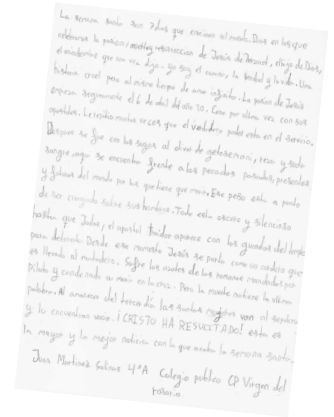 La semana santa son 7 dias que cambiaron al mundo. Dias en los que
celebramos la pasion, muerte y resurreccion de Jesús de Nazaret, el hijo de Dios,
el mismo que un dia dijo: yo soy el camino, la verdad y la vida. Una
historia cruel pero al mismo tiempo de amor infinito. La pasion de Jesús
empieza seguramente el 6 de abril del año 30. Cena por ultima vez con sus
apostoles. Le repitio muchas veces que el verdadero poder esta en el servicio.
Despues se fue con los suyos al olivo de getsemani, reza y suda
sangre, aqui se encuentra frente a los pecados pasados, presentes
y futuros del mundo por los que tiene que morir. Ese peso esta a punto
de ser cargado sobre sus hombros. Todo esta oscuro y silencioso
hasta que Judas, el apostol traidor aparece con los guardas del templo
para detenerle. Desde ese momento Jesús se porta como un cordero que
es llevado al matadero. Sufre los azotes de los romanos mandados por
Pilato y condenado a morir en la cruz. Pero la muerte no tiene la ultima
palabra. Al amanecer del tercer dia las santas mujeres van al sepulcro
y lo encuentran vacio. ¡CRISTO HA RESUCITADO! esta es
la mayor y la mejor noticia con la que acaba la semana santa.
Juan Martinez Salinas 4ºA Colegio publico CP Virgen del
rosario